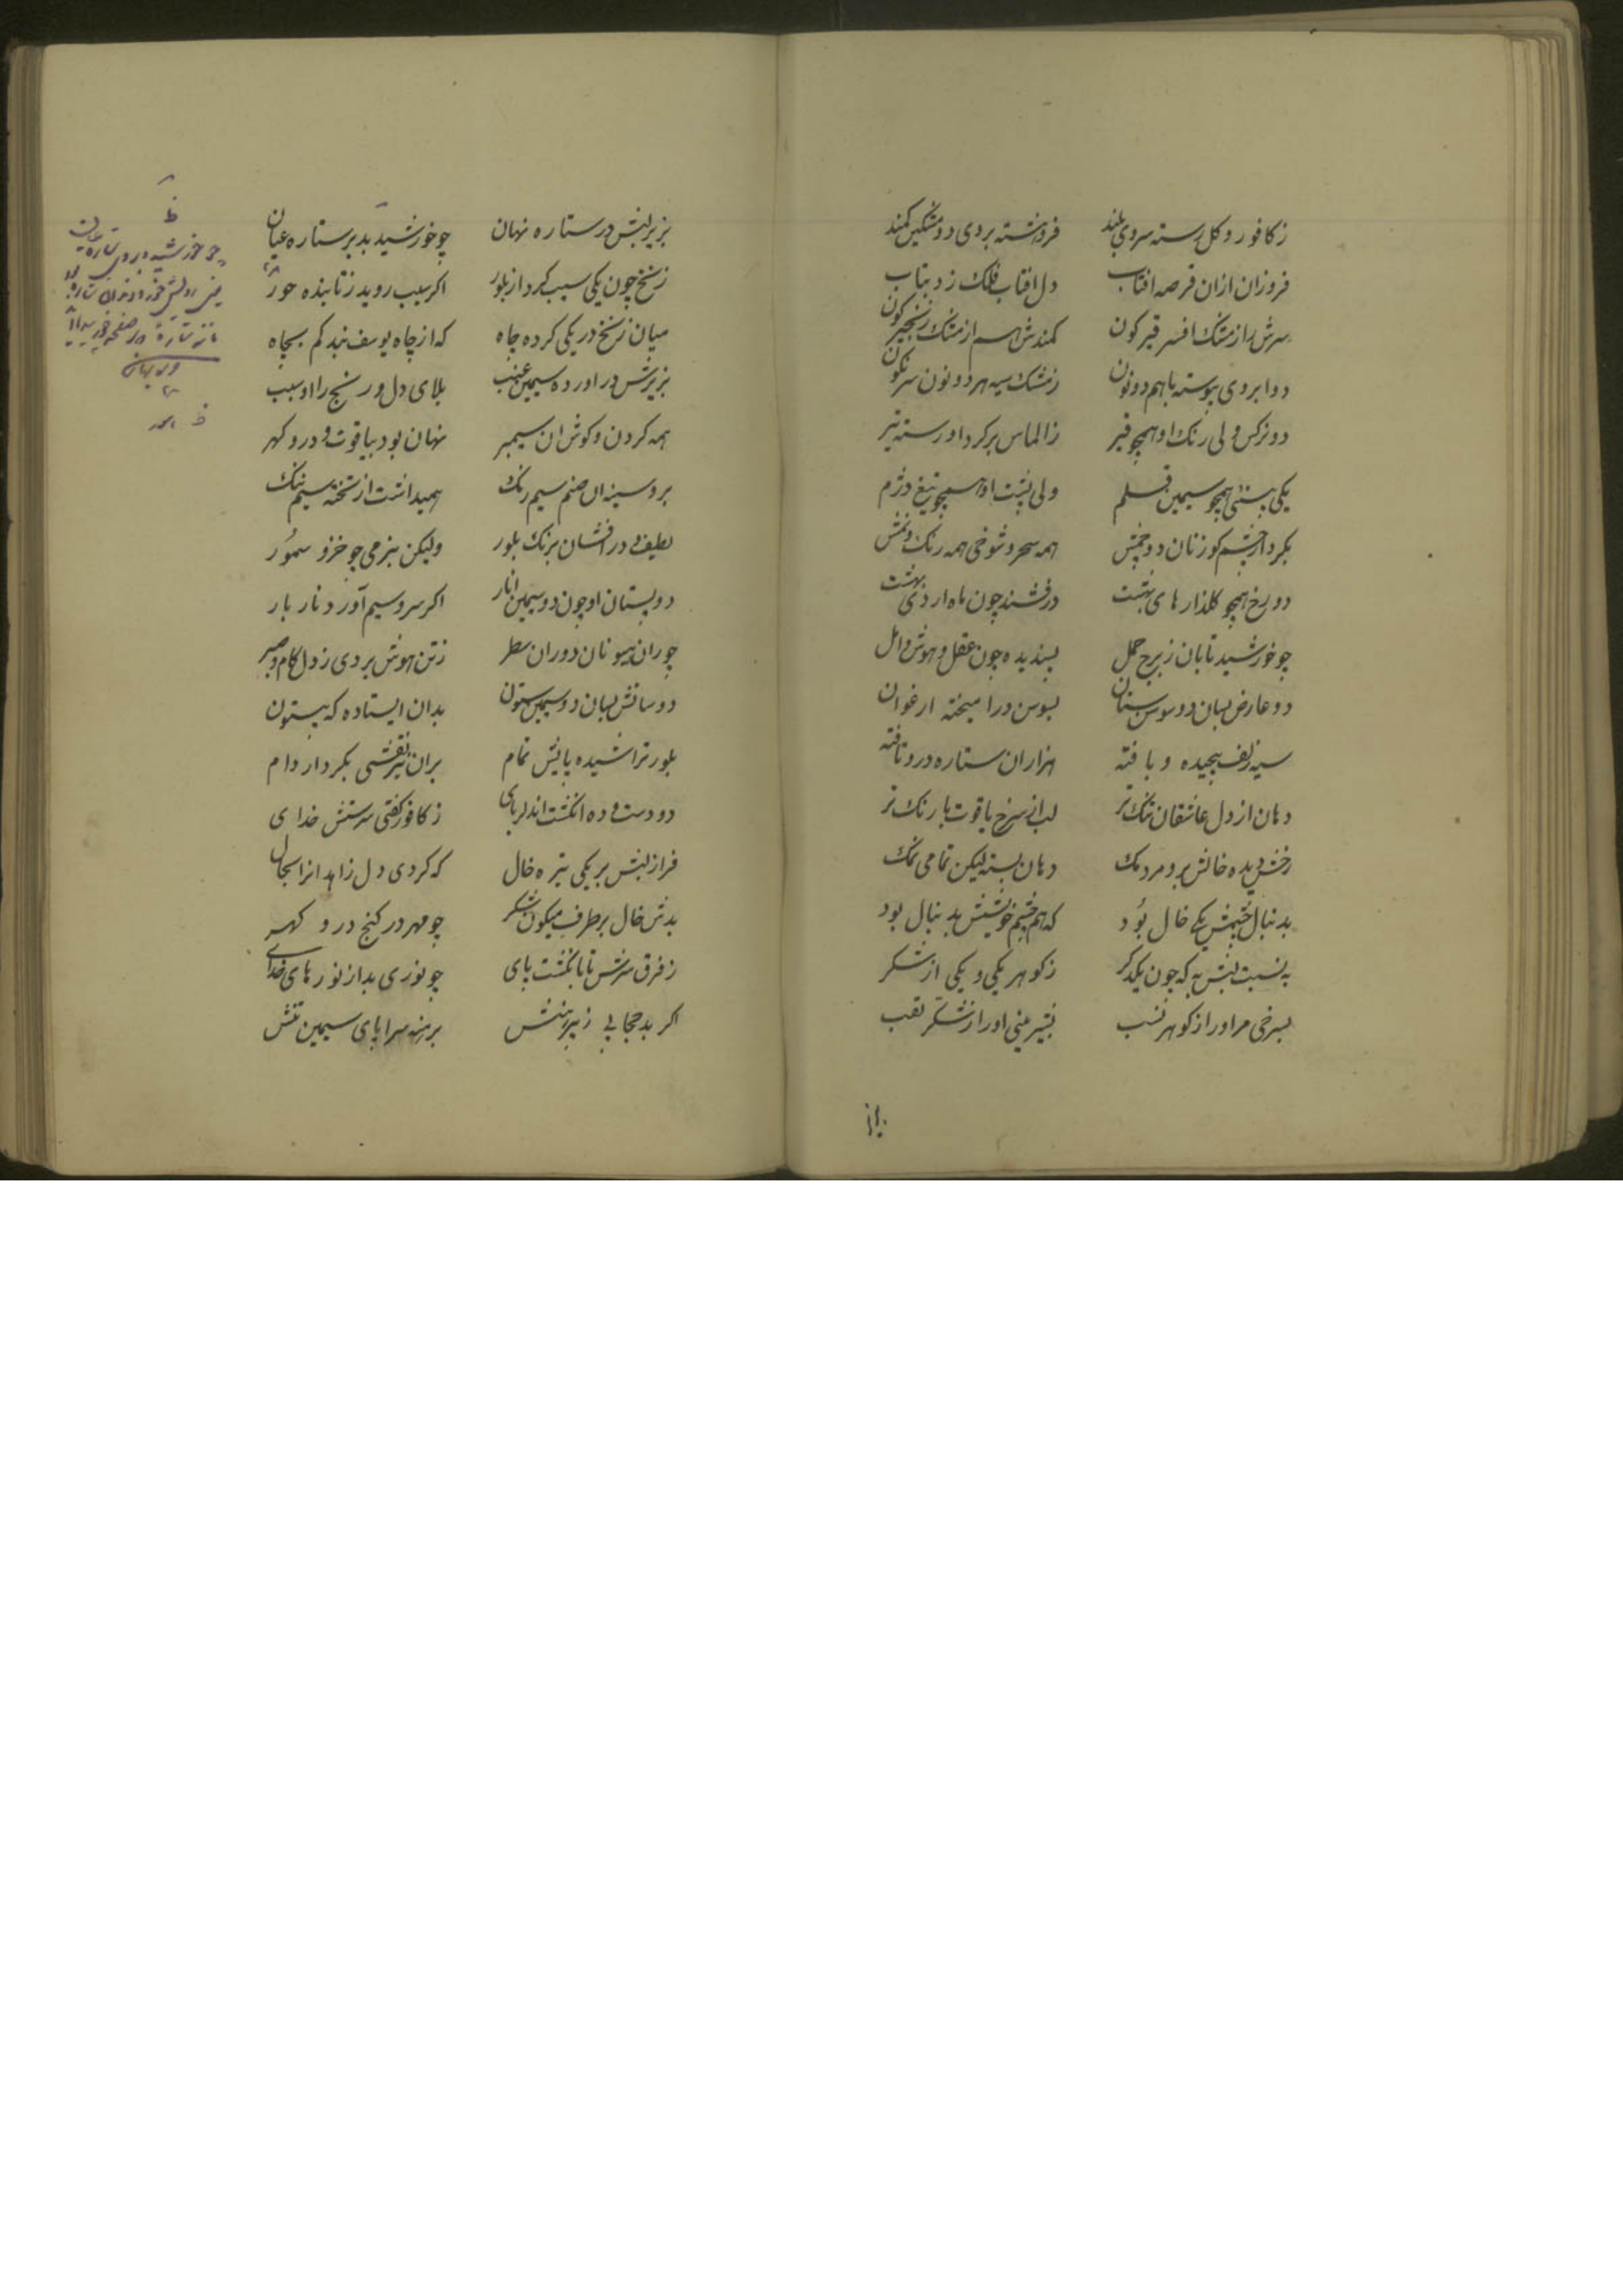 زکافور و کل رسته سروی بلند فروهشته بروی دو مشکین کمند
فروزان ازان قرصه افتاب دل افتاب فلک زد بتاب
سرش را ز مشک افسر قیر کون کمندش هم از مشک زنجیر کون
دو ابروی پیوسته باهم دو نون ز مشک سیه هر دو نون سرنکون
دو نرکس ولی رنک او همچو قیر ز الماس بر کرد او رسته تیر
یکی بینی همچو سیمین قلم ولی پشت او همچو تیغ دژم
بکردار چشم کوزنان دو چشمش همه سحر و شوخی همه رنک و
دو رخ همچو کلنارهای بهشت درفشنده چون ماه اردی بهشت
چو خورشید تابان ز برج حمل پسندیده چون عقل و هوش و امل
دو عارض بسان دو سوسن ستان بسوسن در امیخته ارغوان
سیه زلف پیچیده و بافته هزاران ستاره درو تافته
دهان از دل عاشقان تنک تر لب از سرخ یاقوت با رنک تر
رخش دیده خالش برو مردمک دهان پسته لیکن تمامی نمک
بدنبال چشمش یکی خال بُود که هم چشم خویشش بدنبال بود
به نسبت لبش به که چون یکدکر ز کوهر یکی و یکی از شکر
بسرخی مر او را ز کوهر نسب بشیرینی او را ز شکر لقب
بزیر لبش در ستاره نهان چو خورشید بد بر ستاره عیان
زنخ چون یکی سیب کرد از بلور اکر سیب روید ز تابنده حور
میان زنخ در یکی کرده چاه که از چاه یوسف نبد کم بجاه
بزیرش در اورده سیمین غبب بلای دل و رنج را او سبب
همه کردن و کوش ان سیمبر نهان بود بیاقوت و در و کهر
بر و سینه ان صنم سیم رنک همیداشت از تخته سیم ننک
لطیف و درافشان برنک بلور ولیکن بنرمی چو خز و سمُور
دو پستان او چون دو سیمین انار اکر سرو سیم آورد نار بار
چو ران هیونان دوران سطبر ز تن هوش بردی ز دل کام و صبر
دو ساقش بسان دو سیمین ستون بدان ایستاده که بیستون
بلور تراشیده پایش تمام بران نیز نقشی بکردار دام
دو دست و ده انکشت ان دلربای ز کافور کفتی سرشتش خدای
فراز لبش بر یکی تیره خال که کردی دل زاهدانرا بحال
بدش خال بر طرف میکون شکر چو مهر در کنج در و کهر
ز فرق سرش تا بانکشت پای چو نوری بد از نورهای خدای
اکر بد حجابی ز پیراهنش برهنه سراپای سیمین تنش
ظ
چو خورشید بر روی ستاره عیان